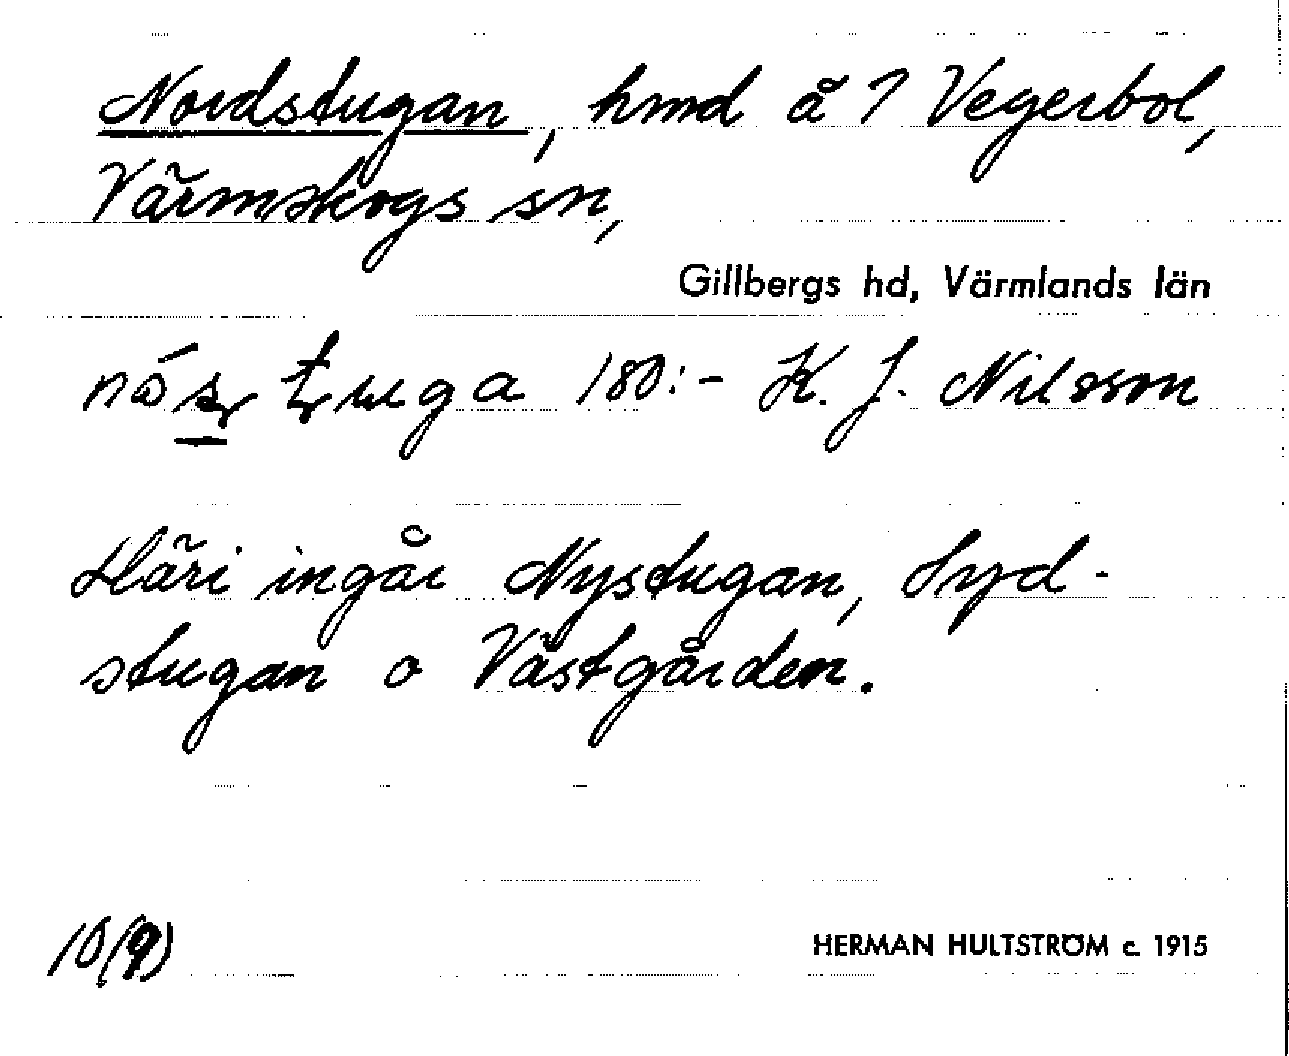 Nordstugan, hmd å 7 Vegerbol,
Värmskogs sn,
Gillbergs hd, Värmlands län
180:- K. J. Nilsson
Häri ingår Nystugan, Syd-
stugan o Västgården.
10(9)
HERMAN HULTSTRÖM c. 1915